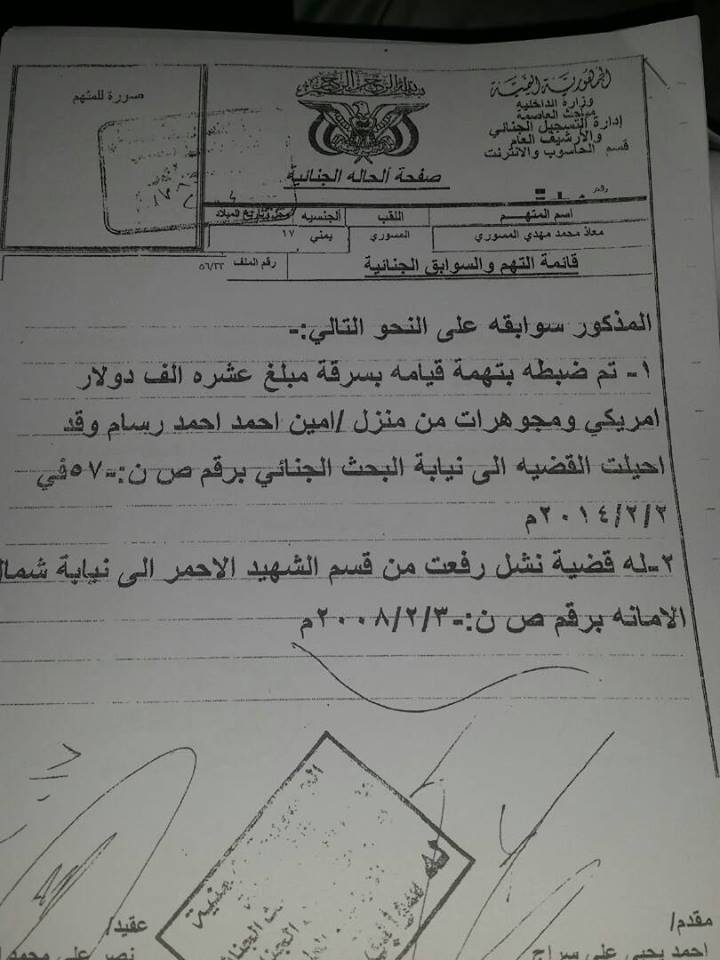 الجمهورية اليمنية
وزارة الداخلية
مباحث العاصمة
إدارة التسجيل الجنائي
والأرشيف العام
قسم الحاسوب والانترنت
بسم الله الرحمن الرحيم
صفحة ألحاله الجنائية
صورة للمتهم
رقم
اسم المتهم
اللقب
الجنسيه
وتاريخ الميلاد
معاذ محمد مهدي المسوري
المسوري
يمني
١٧
قائمة التهم والسوابق الجنائية
رقم الملف
٥٦/٢٢
المذكور سوابقه على النحو التالي:-
١- تم ضبطه بتهمة قيامه بسرقة مبلغ عشره الف دولار
امريكي ومجوهرات من منزل /امين احمد احمد رسام وقد
احيلت القضيه الى نيابة البحث الجنائي برقم ص ن:-٥٧في
٢٠١٤/٢/٢م
٢-له قضية نشل رفعت من قسم الشهيد الاحمر الى نيابة شمال
الامانه برقم ص ن:-٢٠٠٨/٢/٣م
مقدم/
احمد يحيى علي سراج
عقيد/
نصر علي محمد